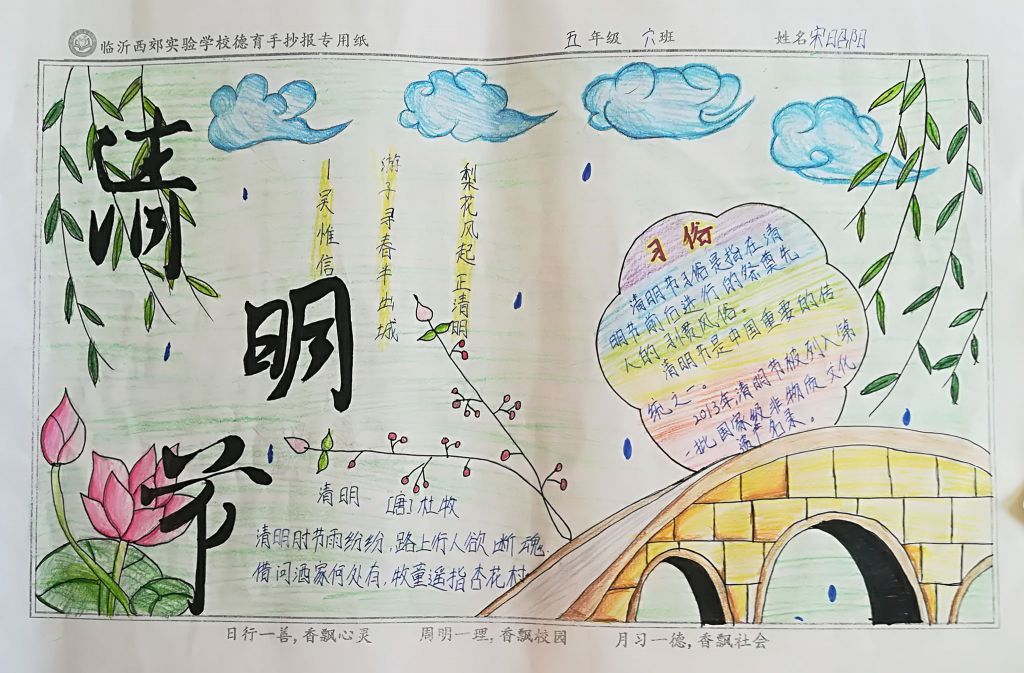 临沂西郊实验学校德育手抄报专用纸
五 年级 六 班
姓名 宋昭阳
清
明
节
梨花风起正清明
游子寻春半出城
吴惟信
习俗
清明节习俗是指在清
明节前后进行的祭奠先
人的习惯风俗。
清明节是中国重要的传
统之一。
2013年清明节被列入第
一批国家级非物质文化
遗产名录。
清明 [唐]杜牧
清明时节雨纷纷，路上行人欲断魂.
借问酒家何处有，牧童遥指杏花村
日行一善，香飘心灵 周明一理，香飘校园 月习一德，香飘社会